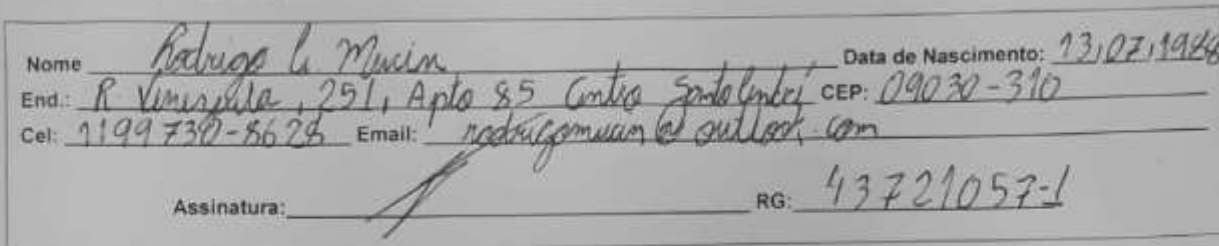 Nome Rodrigo L Mucin Data de Nascimento: 13/07/1988
End.: R Venezuela, 251, Apto 85 Centro Santo André CEP: 09030-310
Cel: 1199730-8628 Email: rodrigomucin@outlook.com
Assinatura: RG: 43721057-1